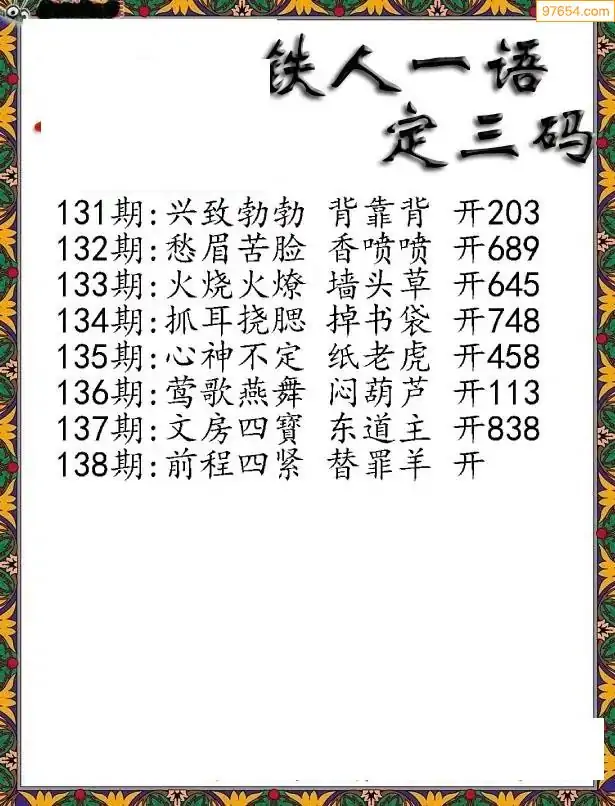 97654.com
铁人一语
定三码
131期:兴致勃勃 背靠背 开203
132期:愁眉苦脸 香喷喷 开689
133期:火烧火燎 墙头草 开645
134期:抓耳挠腮 掉书袋 开748
135期:心神不定 纸老虎 开458
136期:莺歌燕舞 闷葫芦 开113
137期:文房四寶 东道主 开838
138期:前程四紧 替罪羊 开